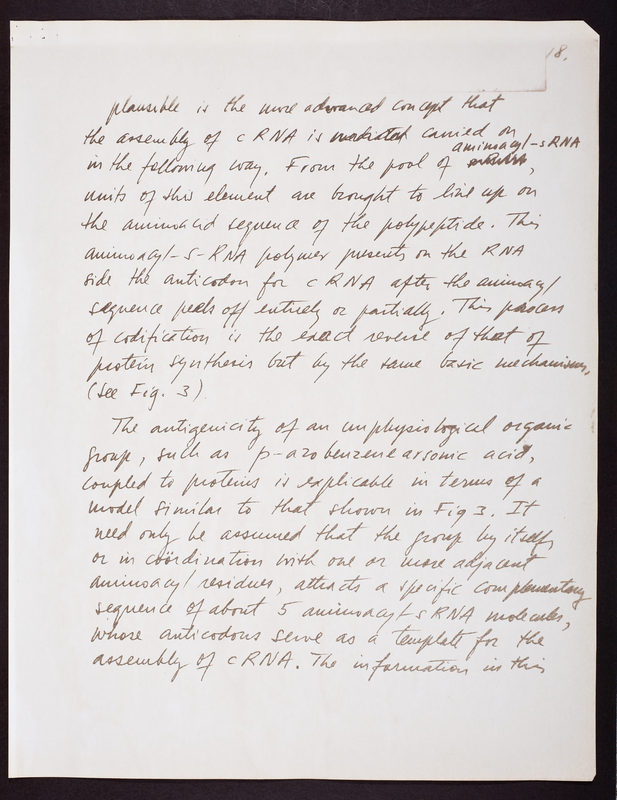 18.
plausible is the more advanced concept that
the assembly of cRNA is mediated carried on
in the following way. From the pool of aminoacyl-sRNA,
units of this element are brought to line up on
the aminoacid sequence of the polypeptide. This
aminoacyl-s-RNA polymer presents on the RNA
side the anticodon for cRNA after the aminoacyl
sequence peels off entirely or partially. This process
of codification is the exact reverse of that of
protein synthesis but by the same basic mechanisms,
(see Fig. 3)
The antigenicity of an unphysiological organic
group, such as p-azobenzenearsonic acid,
coupled to proteins is explicable in terms of a
model similar to that shown in Fig 3. It
need only be assumed that the group by itself,
or in coördination with one or more adjacent
aminoacyl residues, attracts a specific complementary
sequence of about 5 aminoacyl-sRNA molecules,
whose anticodons serve as a template for the
assembly of cRNA. The information in this